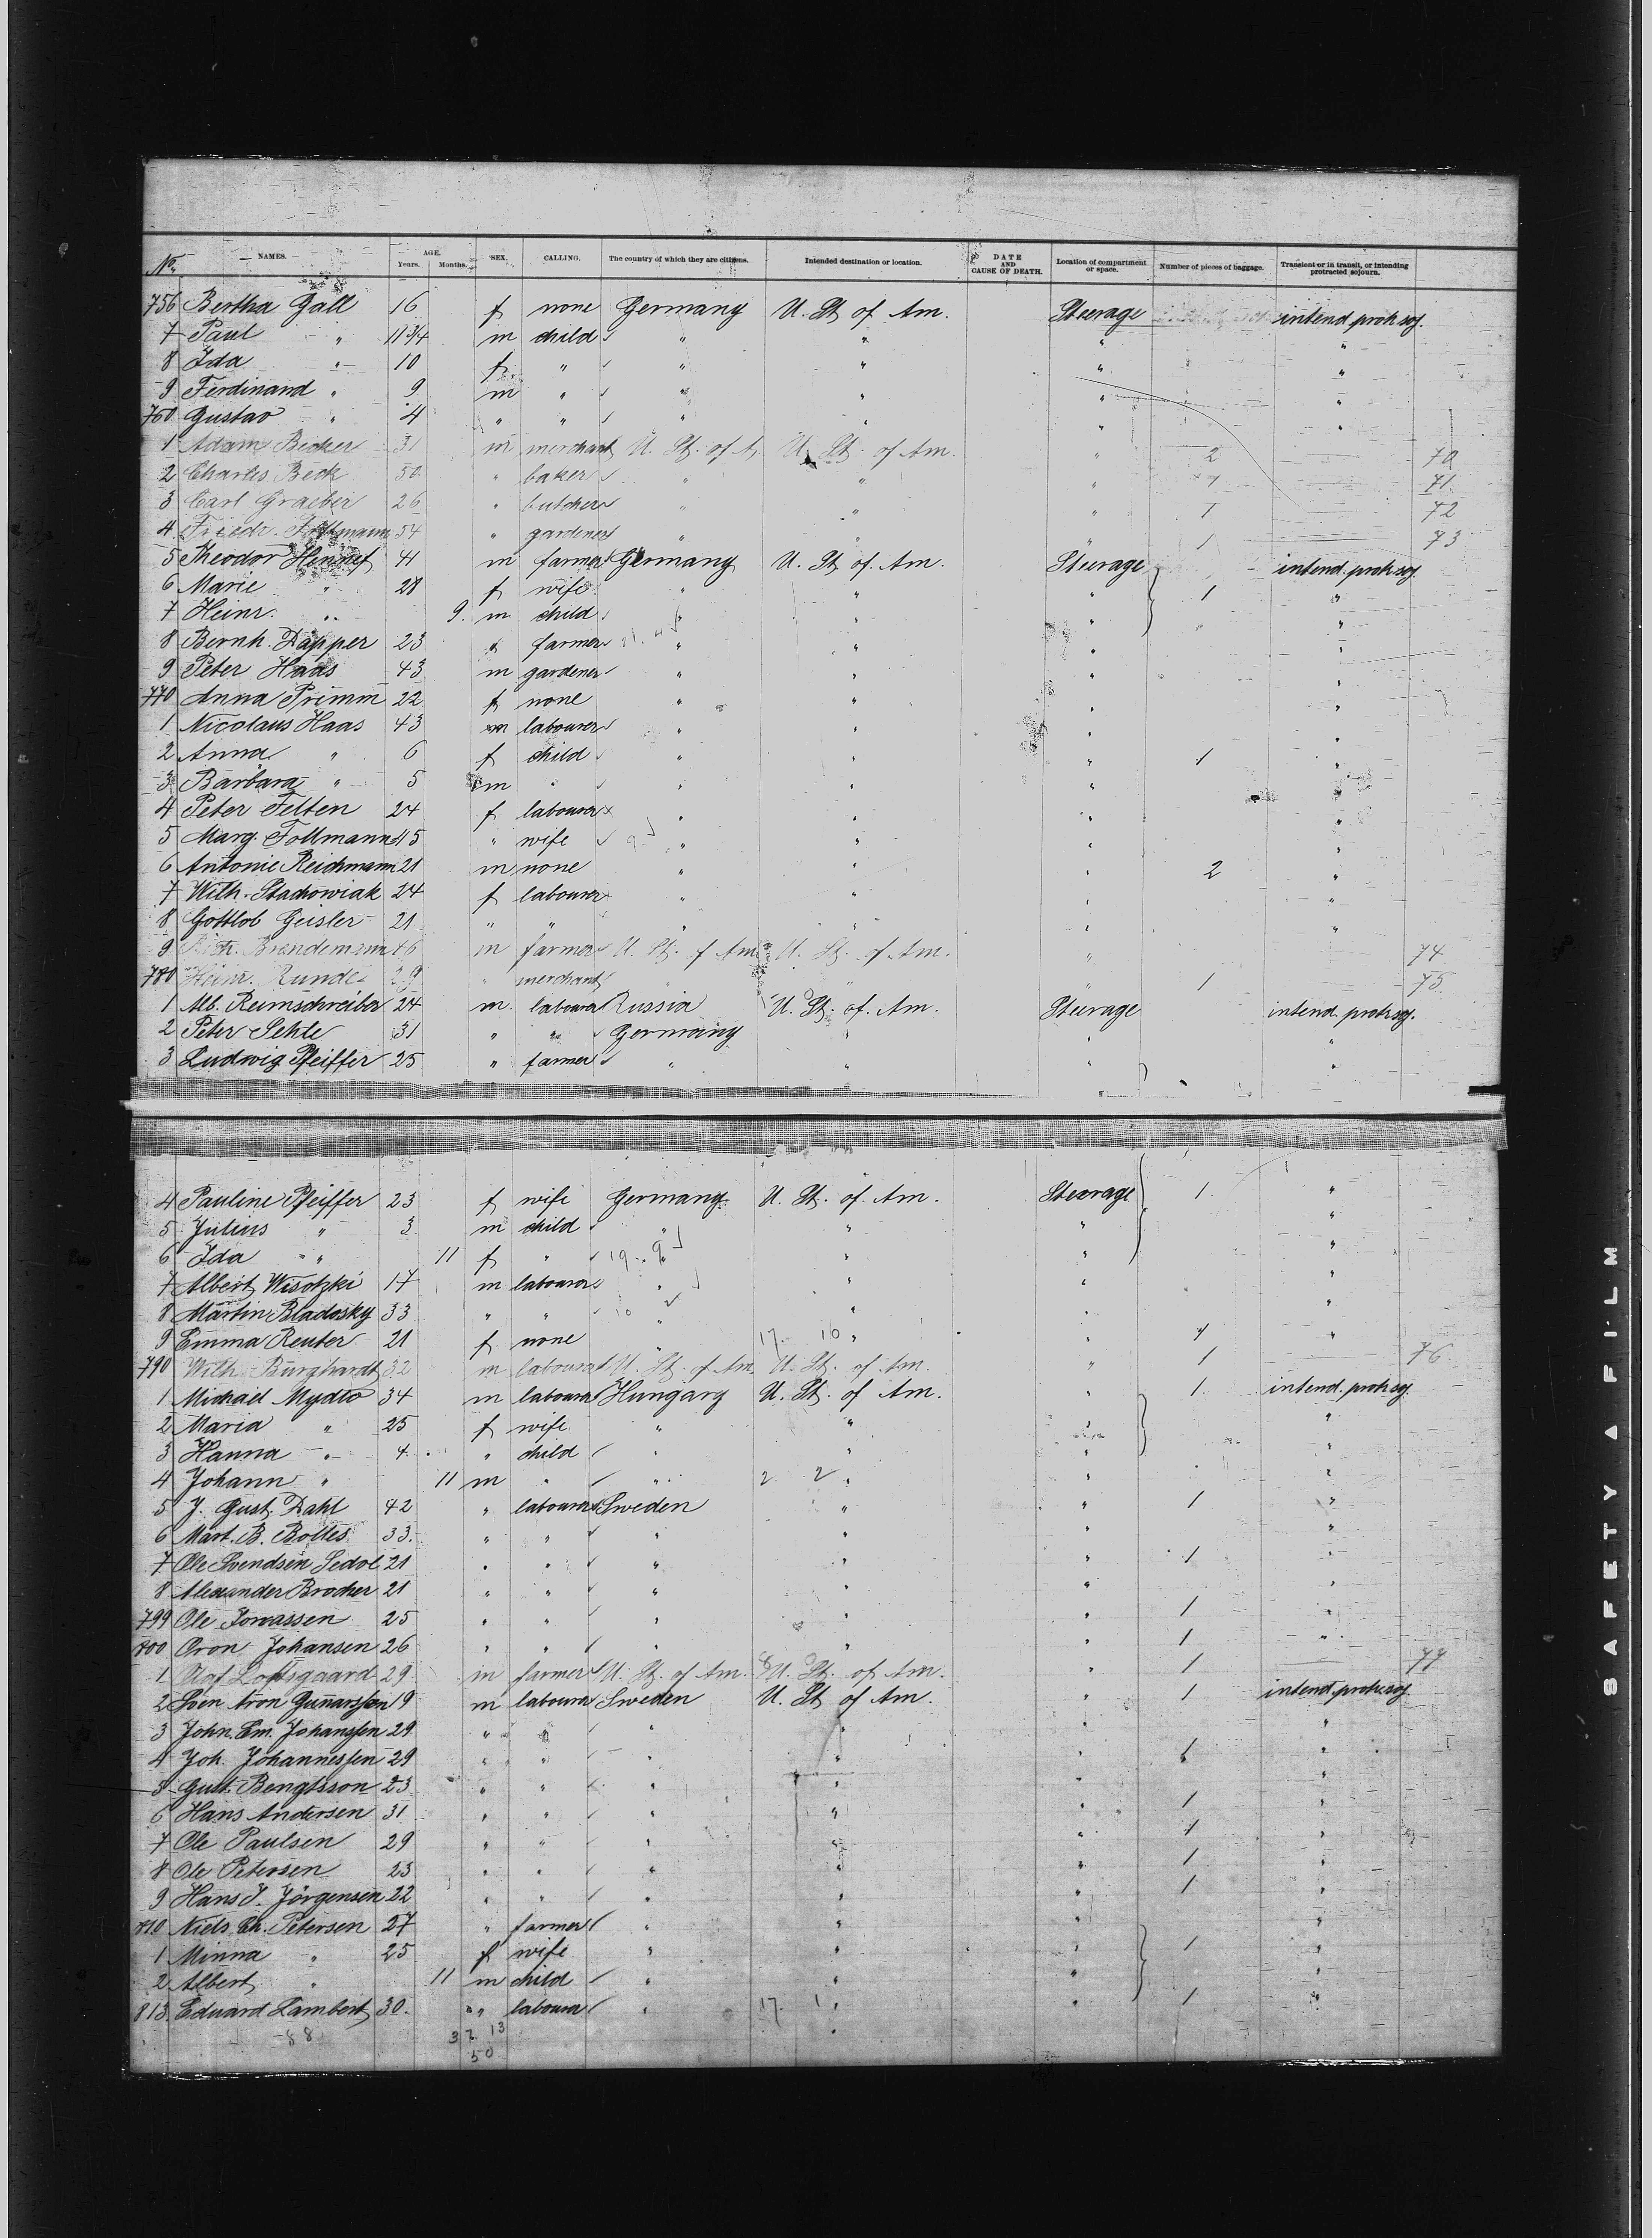 No. NAMES. AGE. Years. Months. SEX. CALLING. The country of which they are citizens. Intended destination or location. DATE AND CAUSE OF DEATH. Location of compartment or space. Number of pieces of baggage. Transient or in transit, or intending protracted sojourn.
756 Bertha Gall 16 f none Germany U. St. of Am. Steerage intend protr soj.
7 Paul " 11 3/4 m child " " " "
8 Ida " 10 f " " " " "
9 Ferdinand " 9 m " " " " "
760 Gustav " 4 " " " " " "
1 Adam Becker 31 m merchant U. St. of A. U. St. of Am. " 2 70
2 Charles Beck 50 " baker " " " 1 71.
3 Carl Graeber 26 " butcher " " " 1 72
4 Friedr. 54 " gardener " " 1 73
5 Theodor 41 m farmer Germany U. St. of Am. Steerage intend. protr soj.
6 Marie " 28 f wife " " " 1 "
7 Heinr. " 9. m child " " " "
8 Bernh. Dapper 23 " farmer " " " "
9 Peter Haas 43 m gardener " " " "
770 Anna Primm 22 f none " " " "
1 Nicolaus Haas 43 m labourer " " " "
2 Anna " 6 f child " " " 1 "
3 Barbara " 5 m " " " " "
4 Peter Felten 24 f labourer " " " "
5 Marg. Follmann 45 " wife " " " "
6 Antonie Reichmann 21 m none " " " 2 "
7 Wilh. Stachowiak 24 f labourer " " " "
8 Gottlob Geisler 21 " " " " " "
9 Brendemann 46 m farmer U. St. of Am. U. St. of Am. " 74
780 Heinr. Runde 29 " merchant " " " 1 75
1 Alb. Reimschreiber 24 m. labourer Russia U. St. of. Am. Steerage intend. protr soj.
2 Peter 31 " " Germany " " "
3 Ludwig Pfeiffer 25 " farmer " " " "
4 Pauline Pfeiffer 23 f wife Germany U. St. of Am. Steerage 1. "
5 Julius " 3 m child " " " "
6 Ida " 11 f " " " " "
7 Albert Wisotzki 17 m labourer " " " "
8 Martin Bladosky 33 " " " " " "
9 Emma Reuter 21 f none " 17. 10 " " 1 "
790 Wilh. Burghardt 32 m labourer U. St. of Am. U. St. of Am. " 1 76
1 Michael Mydlo 34 m labourer Hungary U. St. of Am. " 1. intend. protr soj.
2 Maria " 25 f wife " " " "
3 Hanna " 4. " child " " " "
4 Johann " 11 m " " 2 2 " " "
5 J. Gust. Dahl 42 " labourer Sweden " " 1 "
6 Mart. B. Bolles 33. " " " " " "
7 Ole Svendsen Sedol 21 " " " " " 1 "
8 Alexander Brocher 21 " " " " " "
799 Ole 25 " " " " " 1 "
800 Johansen 26 " " " " " 1 "
1 Olaf Loftsgaard 29 m farmer U. St. of Am. U. St. of Am. " 1 77
2 Sven Aron Gunarssen 19 m labourer Sweden U. St. of Am. " 1 intend protr soj.
3 John. Em. Johanssen 29 " " " " " "
4 Joh. Johannessen 29 " " " " " 1 "
5 Gust. Bengtsson 23 " " " " " "
6 Hans Andersen 31 " " " " " 1 "
7 Ole Paulsen 29 " " " " " 1 "
8 Ole Petersen 23 " " " " " 1 "
9 Hans J. Jörgensen 22 " " " " " 1 "
810 Niels Ch. Petersen 27 " farmer " " " "
1 Minna " 25 f wife " " " 1 "
2 Albert " 11 m child " " " "
813. Eduard Lambert 30. " labourer " 17. 1 " " 1 "
88 37. 13
50
SAFETY A FILM